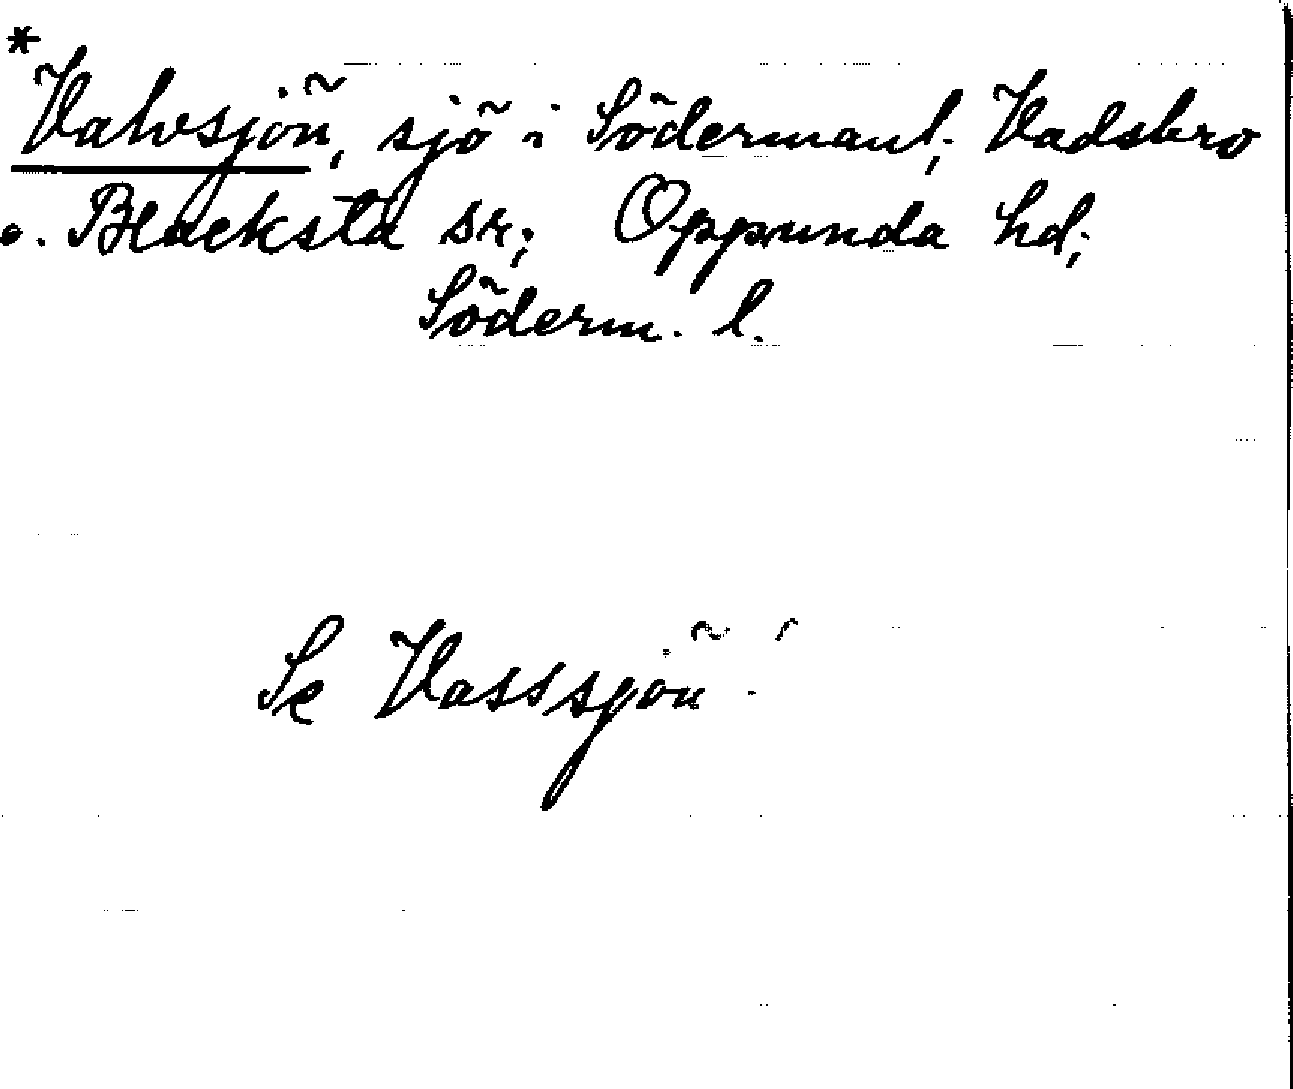 *
Valvsjön, sjö i Södermanl; Vadsbro
o. Blacksta sn; Oppunda hd;
Söderm. l.
Se Vasssjön!